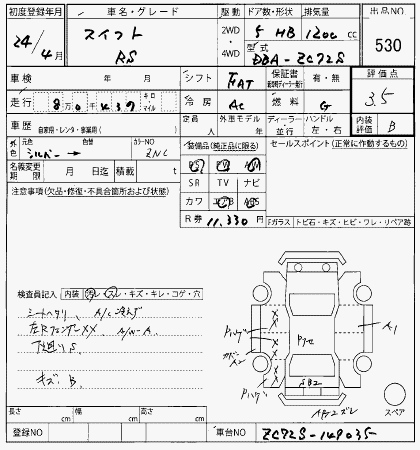 初度登録年月 車名・グレード 駆動 ドア数・形状 排気量 出品NO
24/4月 スイフト RS 2WD・4WD 5 HB 1200 cc 530
型式 DBA-ZC72S
車検 年 月 シフト FAT 保証書 有・無 評価点
走行 8万0千437 キロ・マイル 冷房 AC 燃料 G 3.5
車歴 自家用・レンタ・事業用( ) 定員 人 外車モデル 年 ディーラー・並行 ハンドル 左・右 内装評価 B
外色 元色 シルバー → 色替 カラーNO ZNC 装備品(純正品に限る) セールスポイント(正常に作動するもの)
名義変更期限 月 日迄 積載 t
PS PW AW
SR TV ナビ
注意事項(欠品・修復・不具合箇所および状態) カワ エアB ABS
R券 11,330 円 Fガラス トビ石・キズ・ヒビ・ワレ・リペア跡
検査員記入 内装 汚レ・スレ・キズ・キレ・コゲ・穴
シートヘタリ
左Rフェンダーxx A/W-A
下廻りS
キズ、B
A1
長さ cm 幅 cm 高さ cm スペア
登録NO 車台NO ZC72S-149035